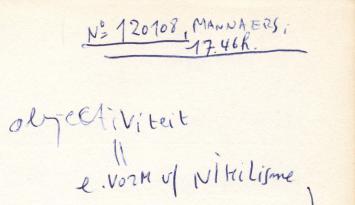 Nº 120108, MANNAERS;
17.46h.
objectiviteit
||
e. vorm v/ Nihilisme